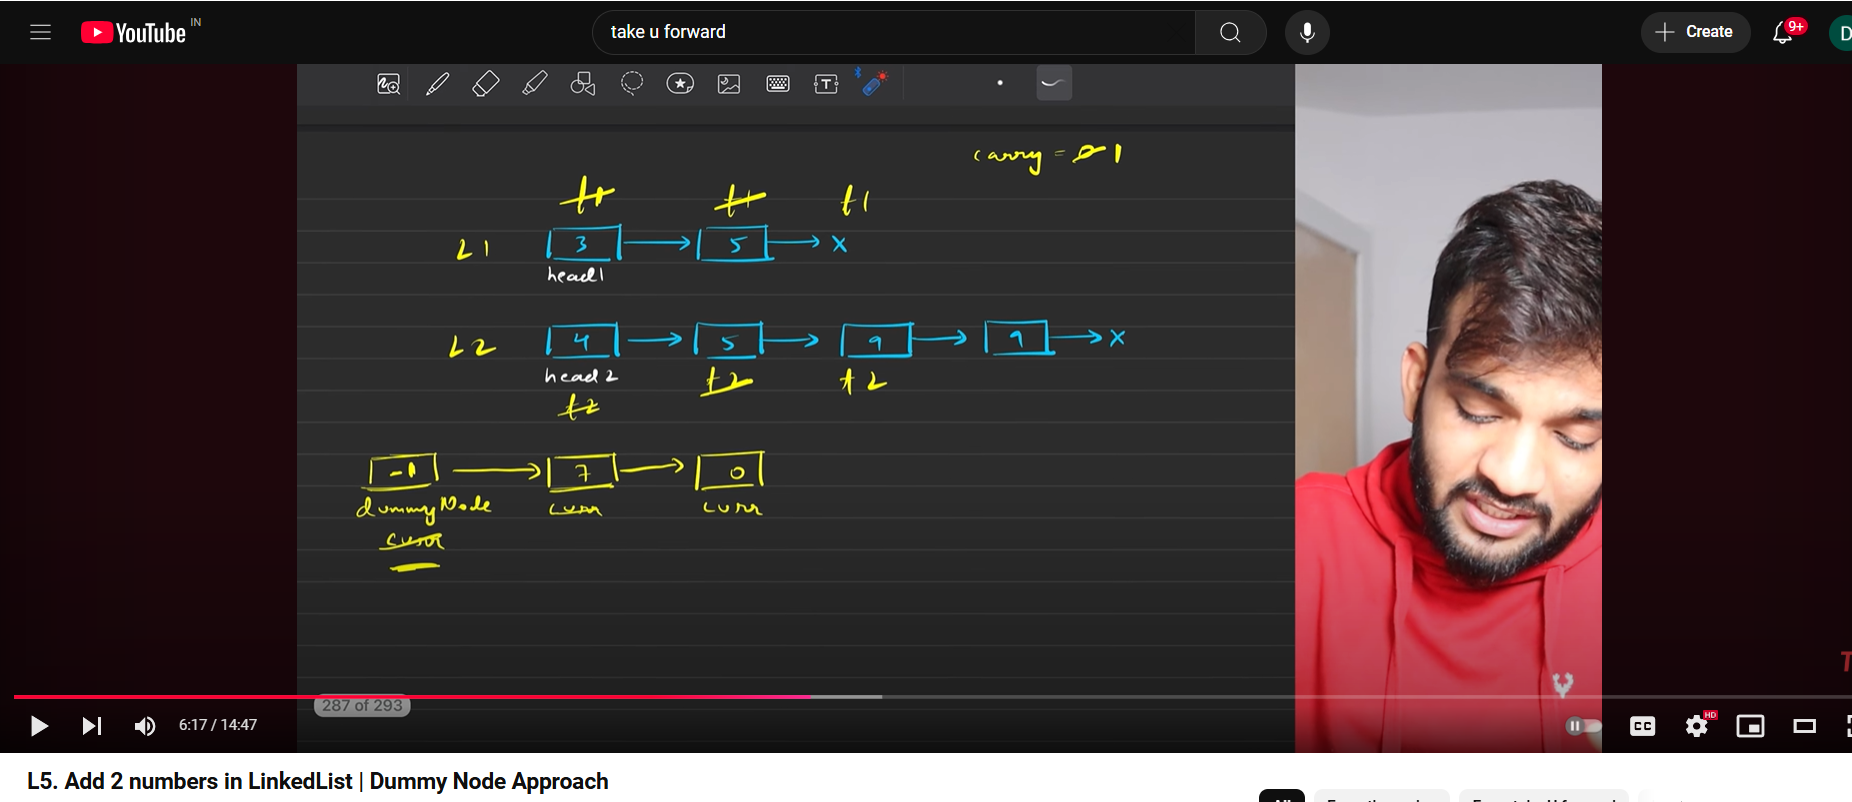 YouTube IN
take u forward
Create
9+
D
carry = 0 1
t1 t1 t1
L1 3 5 X
head1
L2 4 5 9 9 X
head2 t2 t2
t2
-1 7 0
dummyNode curr curr
curr
T
287 of 293
6:17 / 14:47
CC HD
L5. Add 2 numbers in LinkedList | Dummy Node Approach